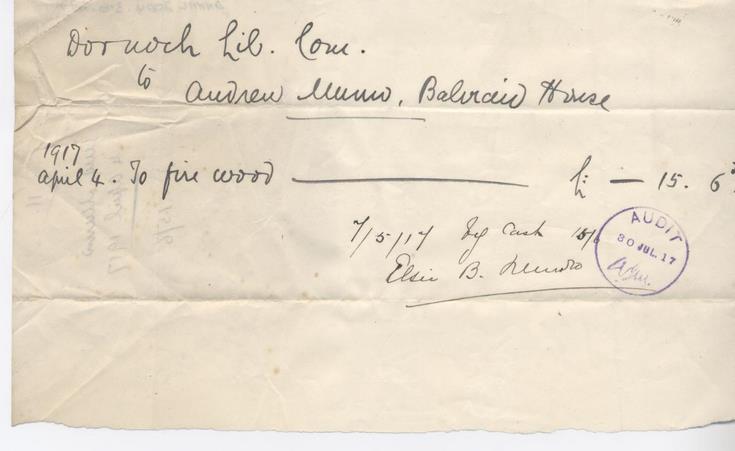 Dornoch Lib. Com.
to
Andrew Munro, Balvraid House
1917
April 4. To fire wood — £ — 15. 6
7/5/17 By Cash 15/6
Elsie B. Munro
AUDIT
30 JUL. 17